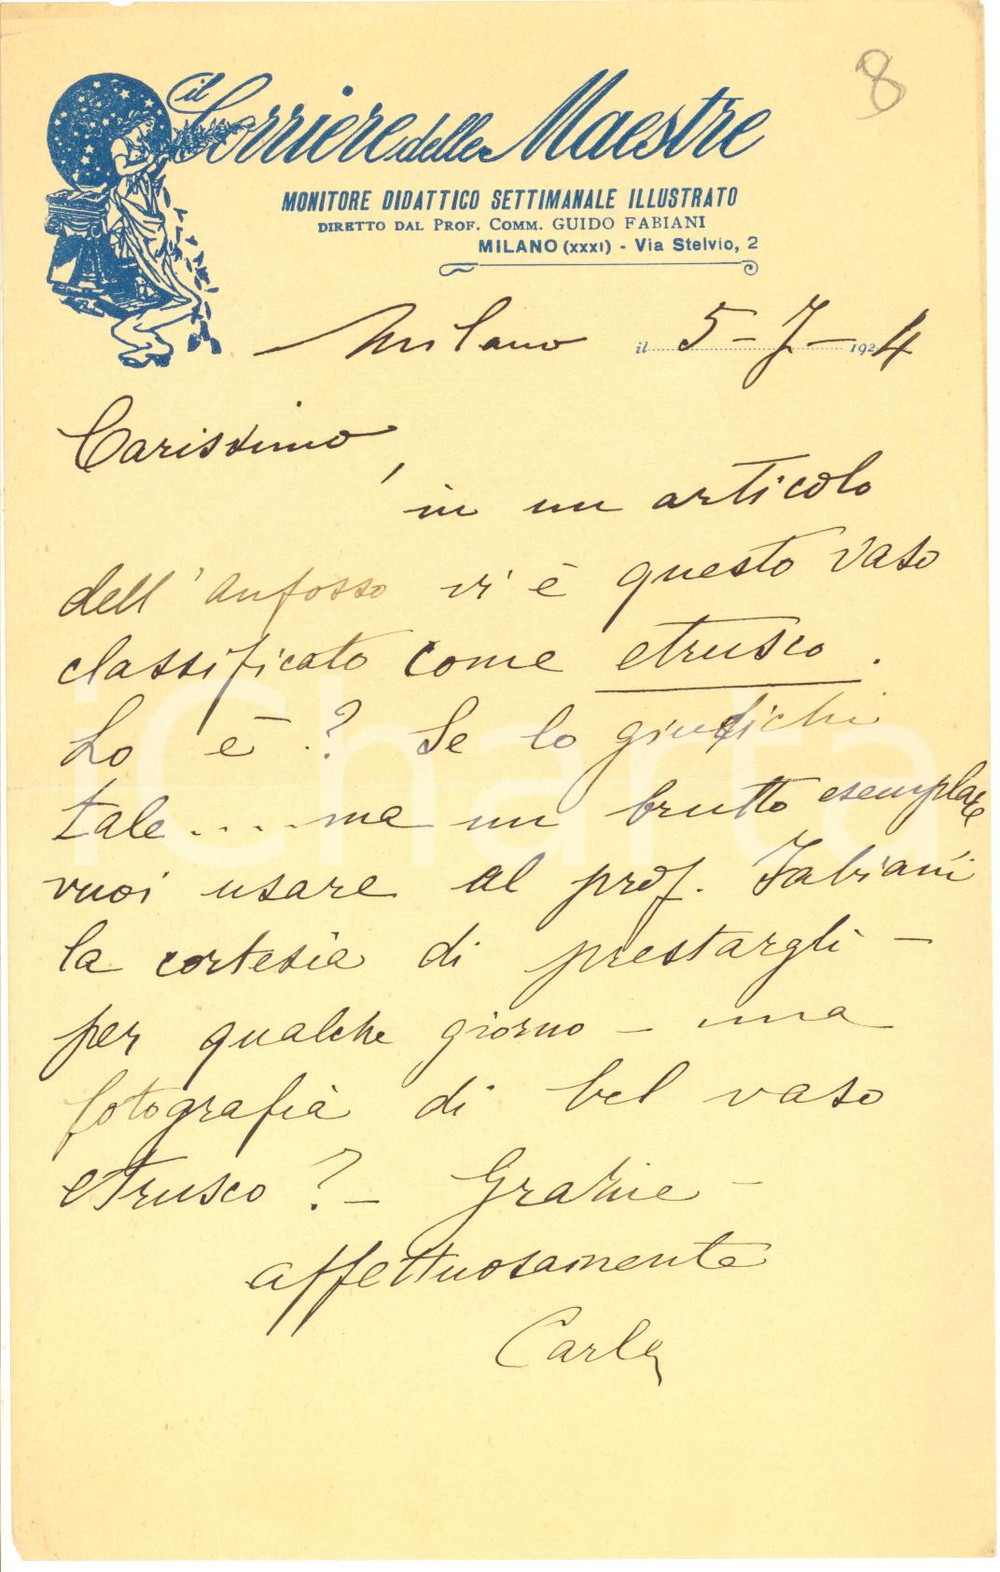 8
il Corriere delle Maestre
MONITORE DIDATTICO SETTIMANALE ILLUSTRATO
DIRETTO DAL PROF. COMM. GUIDO FABIANI
MILANO (XXXI) - Via Stelvio, 2
Milano il 5-7-1924
Carissimo,
in un articolo
dell'Anfosso vi è questo vaso
classificato come etrusco.
Lo è? Se lo giudichi
tale.... ma un brutto esemplare
vuoi usare al prof. Fabiani
la cortesia di prestargli -
per qualche giorno - una
fotografia di bel vaso
etrusco? - Grazie -
affettuosamente
Carla
iCharta